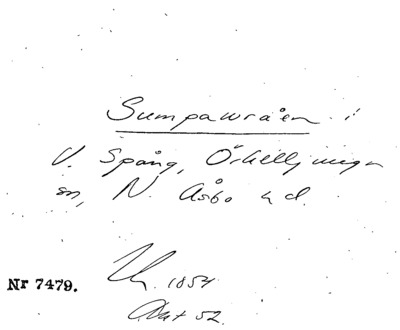 Sumpawraåen i
V. Spång, Örkelljunga
sn, N. Åsbo hd.
Nr 7479.
1854
Akt 52.